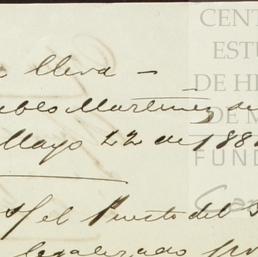 lleva —
Martinez
Mayo 22 de 188
el Puerto del
legalizado por
CENT
ESTU
DE H
DE M
FUND